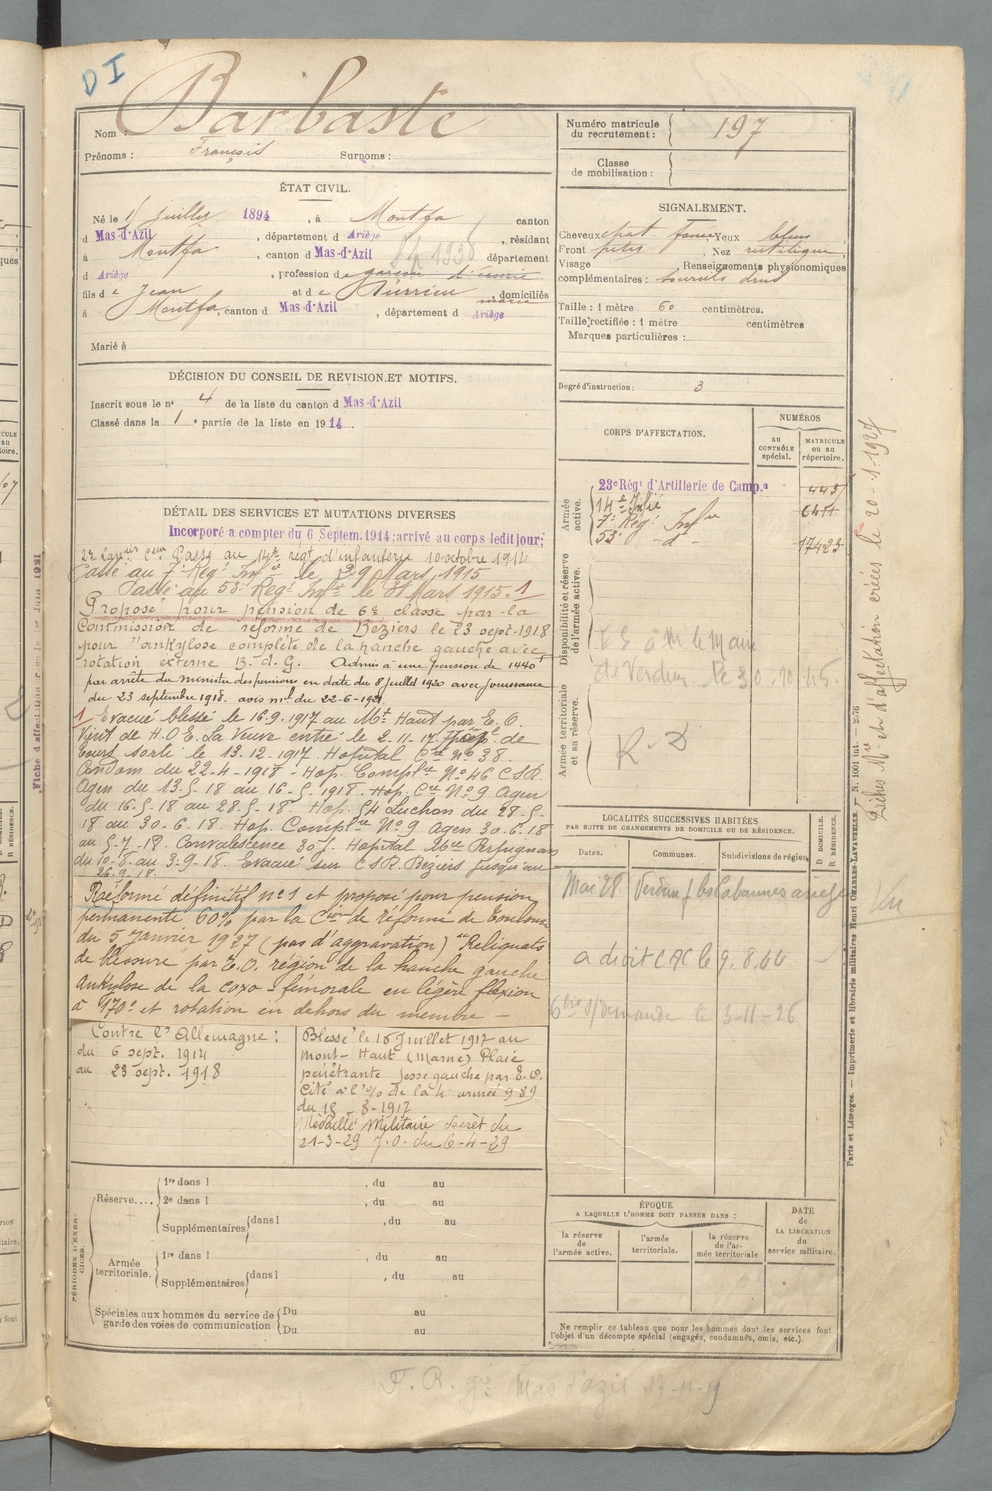 D I
Nom Barbaste
Prénoms : François Surnoms :
Numéro matricule du recrutement : 197
Classe de mobilisation :
ÉTAT CIVIL.
Né le juillet 1894, à Montfa canton
d Mas-d'Azil, département d Ariège, résidant
à Montfa, canton d Mas-d'Azil département
d Ariège, profession de
fils de Jean et de, domiciliés
à Montfa, canton d Mas-d'Azil, département d Ariège
Marié à
SIGNALEMENT.
Cheveux chat. Yeux bleus
Front petit, Nez rectiligne
Visage Renseignements physionomiques
complémentaires : sourcils drus
Taille : 1 mètre 60 centimètres.
Taille rectifiée : 1 mètre centimètres
Marques particulières :
Degré d'instruction : 3
DÉCISION DU CONSEIL DE REVISION ET MOTIFS.
Inscrit sous le n° 4 de la liste du canton d Mas-d'Azil
Classé dans la 1e partie de la liste en 1914.
CORPS D'AFFECTATION.
NUMÉROS
AU CONTRÔLE spécial.
MATRICULE ou au répertoire.
Armée active.
23e Régt d'Artillerie de Camp.e 445
14e
7e Rég. Infie
53e -d°- 17423
Disponibilité et réserve de l'armée active.
de Verdun le 30.10.45.
Armée territoriale et sa réserve.
R.D
DÉTAIL DES SERVICES ET MUTATIONS DIVERSES
Incorporé a compter du 6 Septem. 1914; arrivé au corps ledit jour;
Passé au 14e régt d'infanterie 10 octobre 1914
Passé au 7e Régt Infie le 29 Mars 1915
Passé au 53e Regt Infie le 31 Mars 1915. 1
Proposé pour pension de 6e classe par la
Commission de réforme de Béziers le 23 sept. 1918
pour "ankylose complète de la hanche gauche avec
rotation externe B. d. G. Admis à une pension de 1440
par arrêté du ministre des pensions en date du 8 juillet 1920 avec jouissance
du 23 septembre 1918. avis ml du 22-6-1921.
1 Evacué blessé le 16.9.1917 au Mt Haut par E. O.
Vient de H.O.E. La Veuve entré le 2-11-17. Hopl de
Tours sorti le 13.12.1917 Hopital Cre N° 38.
Condom du 22-4-1918 - Hop. Complre N° 46 CSR.
Agen du 13.5-18 au 16.5.1918. Hop. Cre N° 9 Agen
du 16-5-18 au 28-5-18 Hop. 54 Luchon du 28-5-
18 au 30-6.18. Hop. Complre N° 9 Agen 30-6-18
au 5-7-18. Convalescence 30 j. Hopital Perpignan
du 10-8. au 3-9-18. Evacué sur CSR Béziers jusqu'au
26-9-18.
Réformé définitif n° 1 et proposé pour pension
permanente 60% par la Con de réforme de Toulouse
du 5 Janvier 1927 (pas d'aggravation) "Reliquats
de blessure par E.O. région de la hanche gauche
Ankylose de la coxo-fémorale en légère flexion
à 170° et rotation en dehors du membre —
Contre l'Allemagne :
du 6 sept. 1914
au 23 sept. 1918
Blessé le 16 Juillet 1917 au
Mont-Haut (Marne) Plaie
pénétrante fesse gauche par E.O.
Cité à l'% de la 4e armée 989
du 18-8-1917
Médaille Militaire décret du
21-3-29 J.O. du 6-4-29
LOCALITÉS SUCCESSIVES HABITÉES
PAR SUITE DE CHANGEMENTS DE DOMICILE OU DE RÉSIDENCE.
Dates. Communes. Subdivisions de région. D DOMICILE. R RÉSIDENCE.
Mai 28 Verdun / les Cabannes ariège
a droit CAC le 9.8.60
s/demande le 3-11-26
ÉPOQUE
A LAQUELLE L'HOMME DOIT PASSER DANS :
la réserve de l'armée active.
l'armée territoriale.
la réserve de l'armée territoriale
DATE DE LA LIBÉRATION du service militaire.
Ne remplir ce tableau que pour les hommes dont les services font
l'objet d'un décompte spécial (engagés, condamnés, omis, etc.).
PÉRIODES D'EXERCICES.
Réserve.... 1re dans l , du au
2e dans l , du au
Supplémentaires dans l , du au
Armée territoriale. 1re dans l , du au
Supplémentaires dans l , du au
Spéciales aux hommes du service de garde des voies de communication Du au
Du au
Fiches Mre et d'affectation créées le 20-1-1927
Paris et Limoges. — Imprimerie et librairie militaires Henri CHARLES-LAVAUZELLE.
Mas d'azil